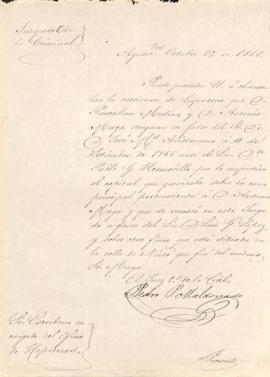 Juzgado 1º de
lo Criminal
Aguas.tes Octubre 27 de 1866.
Puede proceder U. á chance-
lar la escritura de hipoteca que D.
Pantaleon Medina y D. Antonio
Muga otorgaron en favor del Sr. D.
José Mª á 11 de
Setiembre de 1865 ante el Lic. Dn
Pablo G. Hermosillo por lo respectivo
al capital que quedaba sobre la casa
principal perteneciente á D. Antonio
Muga y que se remató en este Juzga-
do á favor del Lic. D. Luis G. Lopez,
y sobre otra finca que está situada en
la calle de que fué del mismo
Sr. Muga.
El Juez 1º de lo
Pedro P. Maldonado
Sr. Escribano en-
cargado del oficio
de Hipotecas.
Presente